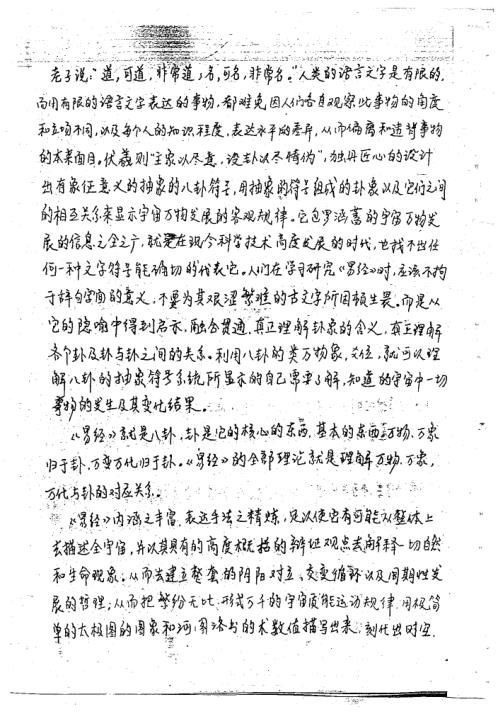 老子说:“道,可道,非常道;名,可名,非常名。”人类的语言文字是有限的,
而用有限的语言文字表达的事物,都难免因人们各自观察此事物的角度
和立场不同,以及每个人的知识程度,表达水平的差异,从而偏离和违背事物
的本来面目。伏羲则“立象以尽意,设卦以尽情伪”,独具匠心的设计
出有象征意义的抽象的八卦符号,用抽象的符号组成的卦象以及它们之间
的相互关系来显示宇宙万物发展的客观规律。它包罗涵蓄的宇宙万物发
展的信息之全之广,就是在现今科学技术高度发展的时代,也找不出任
何一种文字符号能确切的代表它。人们在学习研究《易经》时,应该不拘
于某句字面的意义,不要为其艰涩繁难的古文字所困顿生畏。而是从
它的隐喻中得到启示,融会贯通,真正理解卦象的含义,真正理解
各个卦及卦与卦之间的关系。利用八卦的类万物象,爻位,就可以理
解八卦的抽象符号系统,所显示的自己需要了解,知道的宇宙中一切
事物的发生及其变化结果。
《易经》就是八卦,卦是它的核心的东西,基本的东西,万物、万象
归于卦,万变万化归于卦。《易经》的全部理论就是理解万物、万象,
万化与卦的对应关系。
《易经》内涵之丰富,表达手法之精炼,足以使它有可能从整体上
去描述全宇宙,并以其具有的高度概括的辩证观点去阐释一切自然
和生命现象;从而去建立整套的阴阳对立、交变循环以及周期性发
展的哲理;从而把繁纷无比,形式万千的宇宙质能运动规律,用极简
单的太极图的图象和河图洛书的术数值描写出来,刻化出时空